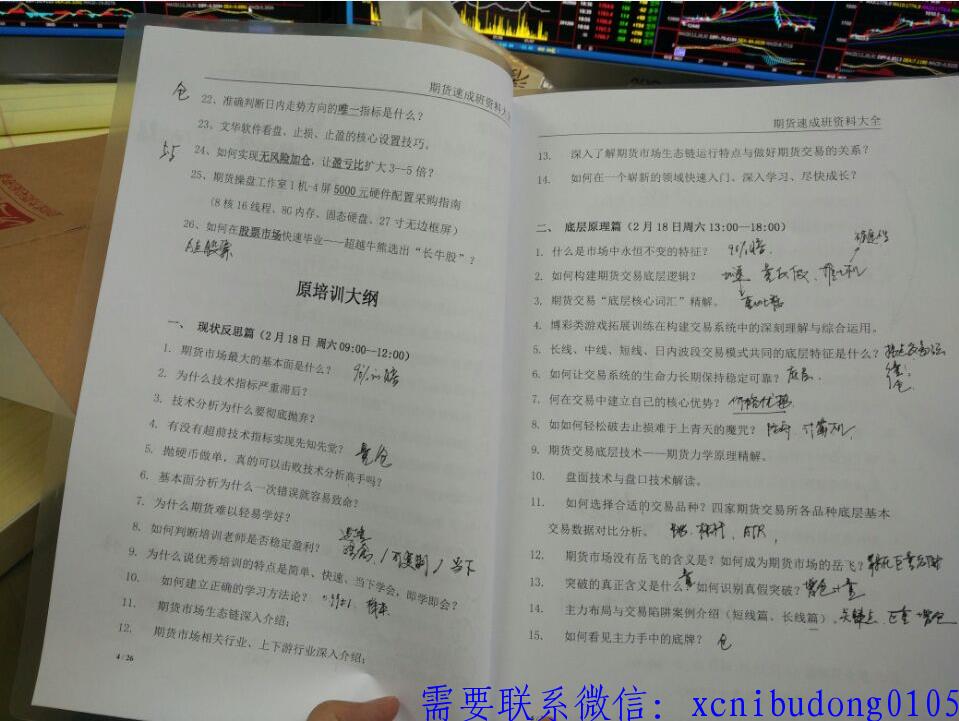 期货速成班资料大全
仓
22、准确判断日内走势方向的唯一指标是什么？
23、文华软件看盘、止损、止盈的核心设置技巧。
24、如何实现无风险加仓，让盈亏比扩大3--5倍？
25、期货操盘工作室1机-4屏5000元硬件配置采购指南
（8核16线程、8G内存、固态硬盘、27寸无边框屏）
26、如何在股票市场快速毕业——超越牛熊选出“长牛股”？
原培训大纲
一、 现状反思篇（2月18日 周六09:00--12:00）
1. 期货市场最大的基本面是什么？
2. 为什么技术指标严重滞后？
3. 技术分析为什么要彻底抛弃？
4. 有没有超前技术指标实现先知先觉？ 量仓
5. 抛硬币做单，真的可以击败技术分析高手吗？
6. 基本面分析为什么一次错误就容易致命？
7. 为什么期货难以轻易学好？
8. 如何判断培训老师是否稳定盈利？
9. 为什么说优秀培训的特点是简单、快速、当下学会，即学即会？
10. 如何建立正确的学习方法论？
11. 期货市场生态链深入介绍；
12. 期货市场相关行业、上下游行业深入介绍；
4 / 26
期货速成班资料大全
13. 深入了解期货市场生态链运行特点与做好期货交易的关系？
14. 如何在一个崭新的领域快速入门、深入学习、尽快成长？
二、 底层原理篇（2月18日周六13:00--18:00）
1. 什么是市场中永恒不变的特征？
2. 如何构建期货交易底层逻辑？
3. 期货交易“底层核心词汇”精解。
4. 博彩类游戏拓展训练在构建交易系统中的深刻理解与综合运用。
5. 长线、中线、短线、日内波段交易模式共同的底层特征是什么？
6. 如何让交易系统的生命力长期保持稳定可靠？ 底层.
7. 何在交易中建立自己的核心优势？ 价格优势
8. 如如何轻松破去止损难于上青天的魔咒？ 计算机
9. 期货交易底层技术——期货力学原理精解。
10. 盘面技术与盘口技术解读。
11. 如何选择合适的交易品种？四家期货交易所各品种底层基本
交易数据对比分析。 杠杆、ATR，
12. 期货市场没有岳飞的含义是？如何成为期货市场的岳飞？
13. 突破的真正含义是什么？如何识别真假突破？
14. 主力布局与交易陷阱案例介绍（短线篇、长线篇）
15. 如何看见主力手中的底牌？ 仓
需要联系微信：xcnibudong0105